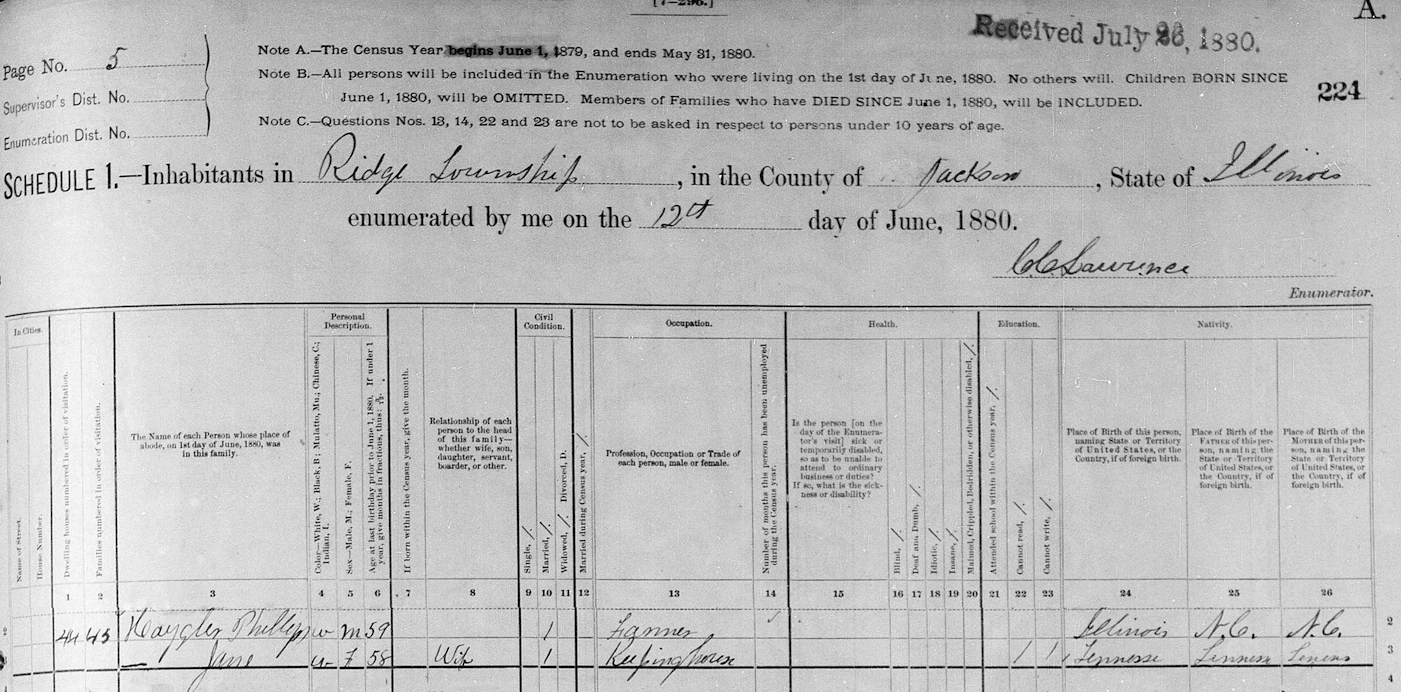 [7—296.]
A.
Received July 26, 1880.
Page No. 5
Supervisor's Dist. No.
Enumeration Dist. No.
Note A.—The Census Year begins June 1, 1879, and ends May 31, 1880.
Note B.—All persons will be included in the Enumeration who were living on the 1st day of June, 1880. No others will. Children BORN SINCE
June 1, 1880, will be OMITTED. Members of Families who have DIED SINCE June 1, 1880, will be INCLUDED.
Note C.—Questions Nos. 13, 14, 22 and 23 are not to be asked in respect to persons under 10 years of age.
224
SCHEDULE 1.—Inhabitants in Ridge Township, in the County of Jackson, State of Illinois
enumerated by me on the 12th day of June, 1880.
C C Lawrence
Enumerator.
In Cities.
Name of Street.
House Number.
Dwelling houses numbered in order of visitation.
Families numbered in order of visitation.
The Name of each Person whose place of
abode, on 1st day of June, 1880, was
in this family.
Personal
Description.
Color—White, W.; Black, B.; Mulatto, Mu.; Chinese, C.;
Indian, I.
Sex—Male, M.; Female, F.
Age at last birthday prior to June 1, 1880. If under 1
year, give months in fractions, thus:
If born within the Census year, give the month.
Relationship of each
person to the head
of this family—
whether wife, son,
daughter, servant,
boarder, or other.
Civil
Condition.
Single, /.
Married, /.
Widowed, /. Divorced, D.
Married during Census year, /.
Occupation.
Profession, Occupation or Trade of
each person, male or female.
Number of months this person has been unemployed
during the Census year.
Health.
Is the person [on the
day of the Enumera-
tor's visit] sick or
temporarily disabled,
so as to be unable to
attend to ordinary
business or duties?
If so, what is the sick-
ness or disability?
Blind, /.
Deaf and Dumb, /.
Idiotic, /.
Insane, /.
Maimed, Crippled, Bedridden, or otherwise disabled, /.
Education.
Attended school within the Census year, /.
Cannot read, /.
Cannot write, /.
Nativity.
Place of Birth of this person,
naming State or Territory
of United States, or the
Country, if of foreign birth.
Place of Birth of the
FATHER of this per-
son, naming the
State or Territory
of United States, or
the Country, if of
foreign birth.
Place of Birth of the
MOTHER of this per-
son, naming the
State or Territory
of United States, or
the Country, if of
foreign birth.
1 2 3 4 5 6 7 8 9 10 11 12 13 14 15 16 17 18 19 20 21 22 23 24 25 26
2 44 45 Phillip W M 59 / Farmer Illinois N.C. N.C. 2
— Jane W F 58 Wife / Keeping house / / Tennesse 3
4